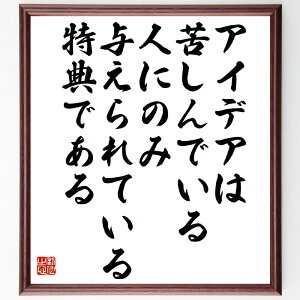 アイデアは
苦しんでいる
人にのみ
与えられている
特典である